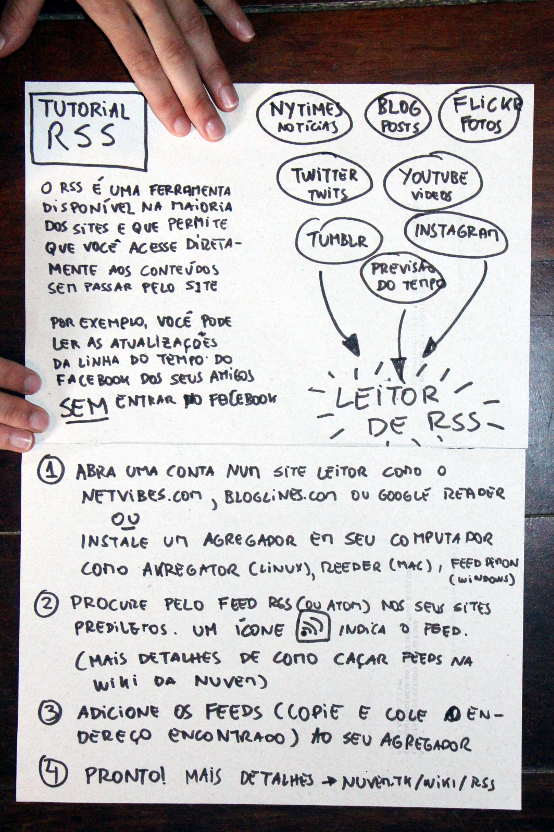 TUTORIAL
RSS
O RSS É UMA FERRAMENTA
DISPONÍVEL NA MAIORIA
DOS SITES E QUE PERMITE
QUE VOCÊ ACESSE DIRETA-
MENTE AOS CONTEÚDOS
SEM PASSAR PELO SITE
POR EXEMPLO, VOCÊ PODE
LER AS ATUALIZAÇÕES
DA LINHA DO TEMPO DO
FACEBOOK DOS SEUS AMIGOS
SEM ENTRAR NO FACEBOOK
NYTIMES
NOTÍCIAS
BLOG
POSTS
FLICKR
FOTOS
TWITTER
TWITS
YOUTUBE
VIDEOS
TUMBLR
INSTAGRAM
PREVISÃO
DO TEMPO
LEITOR
DE RSS
1 ABRA UMA CONTA NUM SITE LEITOR COMO O
NETVIBES.COM, BLOGLINES.COM OU GOOGLE READER
OU
INSTALE UM AGREGADOR EM SEU COMPUTADOR
COMO AKREGATOR (LINUX), REEDER (MAC), FEED DEMON
(WINDOWS)
2 PROCURE PELO FEED RSS (OU ATOM) NOS SEUS SITES
PREDILETOS. UM ÍCONE INDICA O FEED.
(MAIS DETALHES DE COMO CAÇAR FEEDS NA
WIKI DA NUVEM)
3 ADICIONE OS FEEDS (COPIE E COLE O EN-
DEREÇO ENCONTRADO) AO SEU AGREGADOR
4 PRONTO! MAIS DETALHES → NUVEM.TK/WIKI/RSS